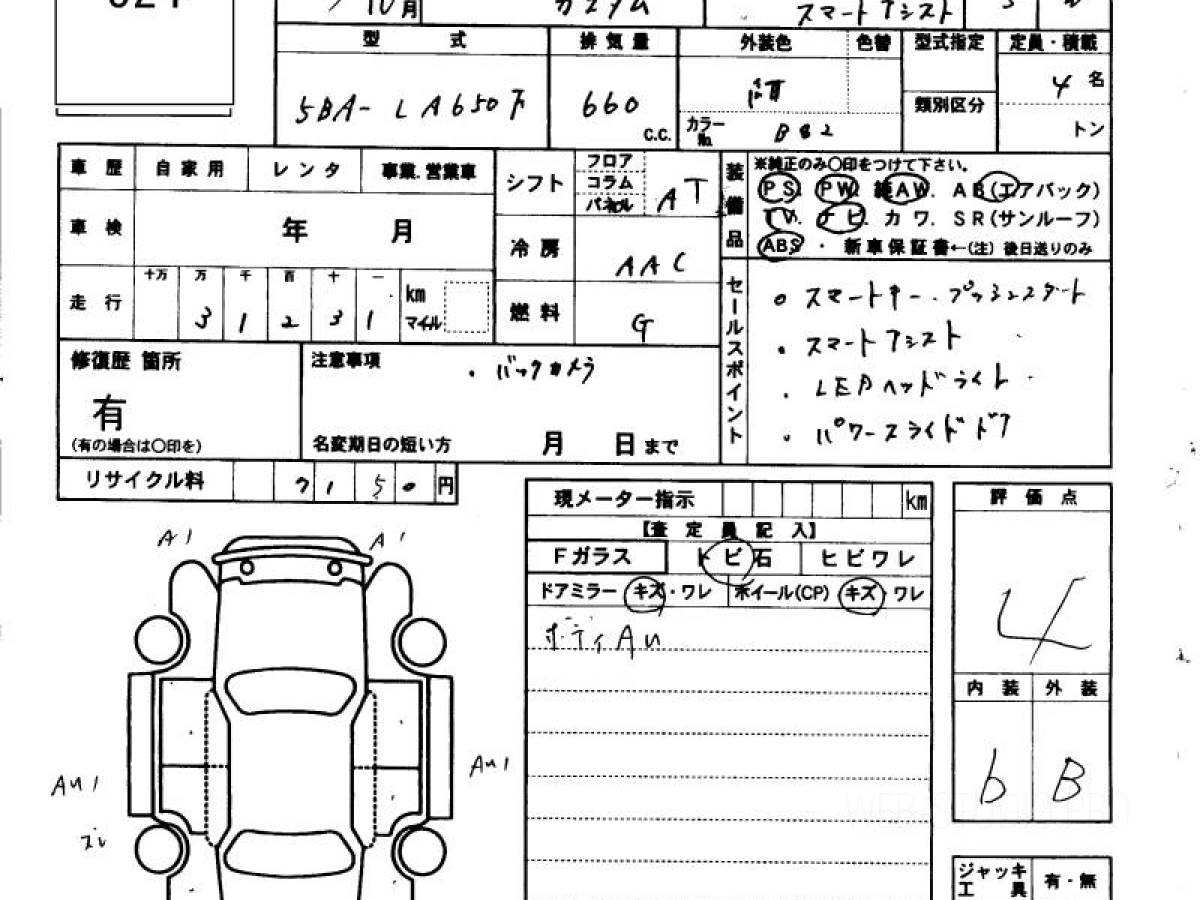 月 カスタム スマートアシスト
型式 排気量 外装色 色替 型式指定 定員・積載
5BA-LA650S 660 C.C. 4名
カラーNo. 類別区分 トン
車歴 自家用 レンタ 事業.営業車
シフト フロア コラム パネル AT
装備品 ※純正のみ〇印をつけて下さい。
PS. PW. 純AW. AB(エアバック)
TV. ナビ. カワ. SR(サンルーフ)
ABS ・ 新車保証書←(注) 後日送りのみ
車検 年 月
冷房 AAC
走行 十万 万 千 百 十 一
3 1 2 3 1 km マイル
燃料 G
セールスポイント
スマートキー.プッシュスタート
・スマートアシスト
・LEDヘッドライト
・パワースライドドア
修復歴 箇所
有
(有の場合は〇印を)
注意事項 ・バックカメラ
名変期日の短い方 月 日まで
リサイクル料 7150円
現メーター指示 km
【査定員記入】
Fガラス トビ石 ヒビワレ
ドアミラー キズ・ワレ ホイール(CP) キズ・ワレ
ボディAU
評価点
4
内装 外装
b B
A1 A1
AU1 AU1
ジャッキ 工具 有・無